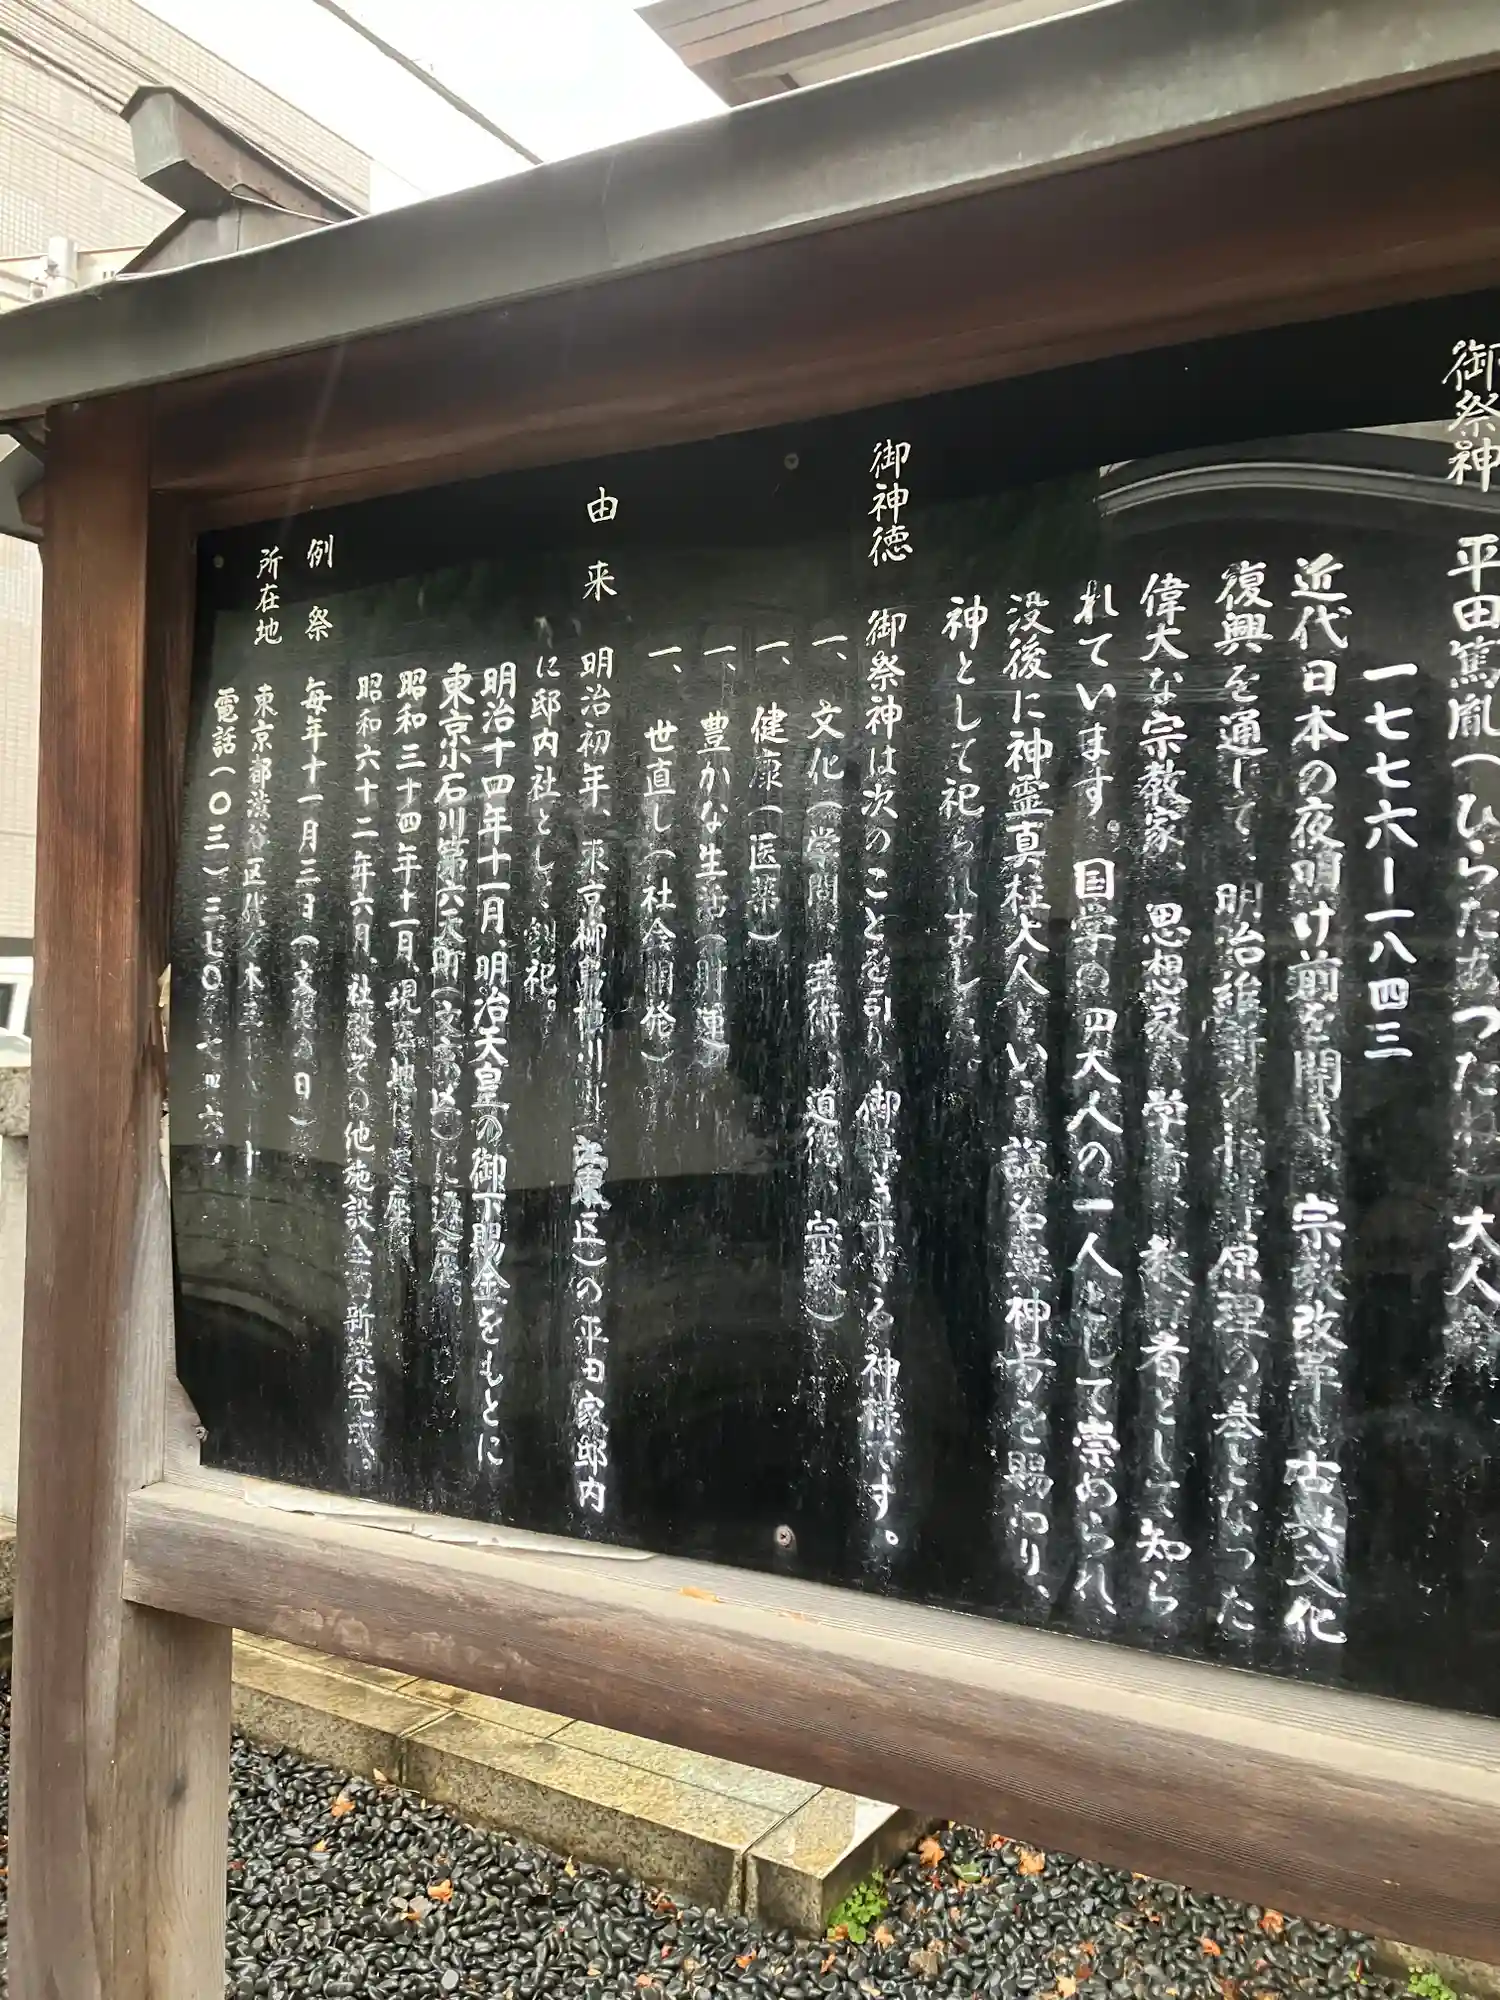 御祭神 平田篤胤(ひらたあつたね)大人命
一七七六ー一八四三
近代日本の夜明け前を開き、宗教改革と古典文化
復興を通じて、明治維新の指導原理の基となった
偉大な宗教家、思想家、学者、教育者として知ら
れています。国学の四大人の一人として崇められ、
没後に神霊真柱大人という諡名、神号を賜わり、
神として祀られました。
御神徳 御祭神は次のことを司り、御導き下さる神様です。
一、文化(学問、芸術、道徳、宗教)
一、健康(医薬)
一、豊かな生活(財運)
一、世直し(社会開発)
由来 明治初年、東京柳島横川(江東区)の平田家邸内
に邸内社として創祀。
明治十四年十一月、明治天皇の御下賜金をもとに
東京小石川第六天町(文京区)に遷座。
昭和三十四年十一月、現在地に遷座。
昭和六十二年六月、社殿その他施設全て新築完成。
例祭 毎年十一月三日(文化の日)
所在地 東京都渋谷区代々木
電話(〇三)三七〇